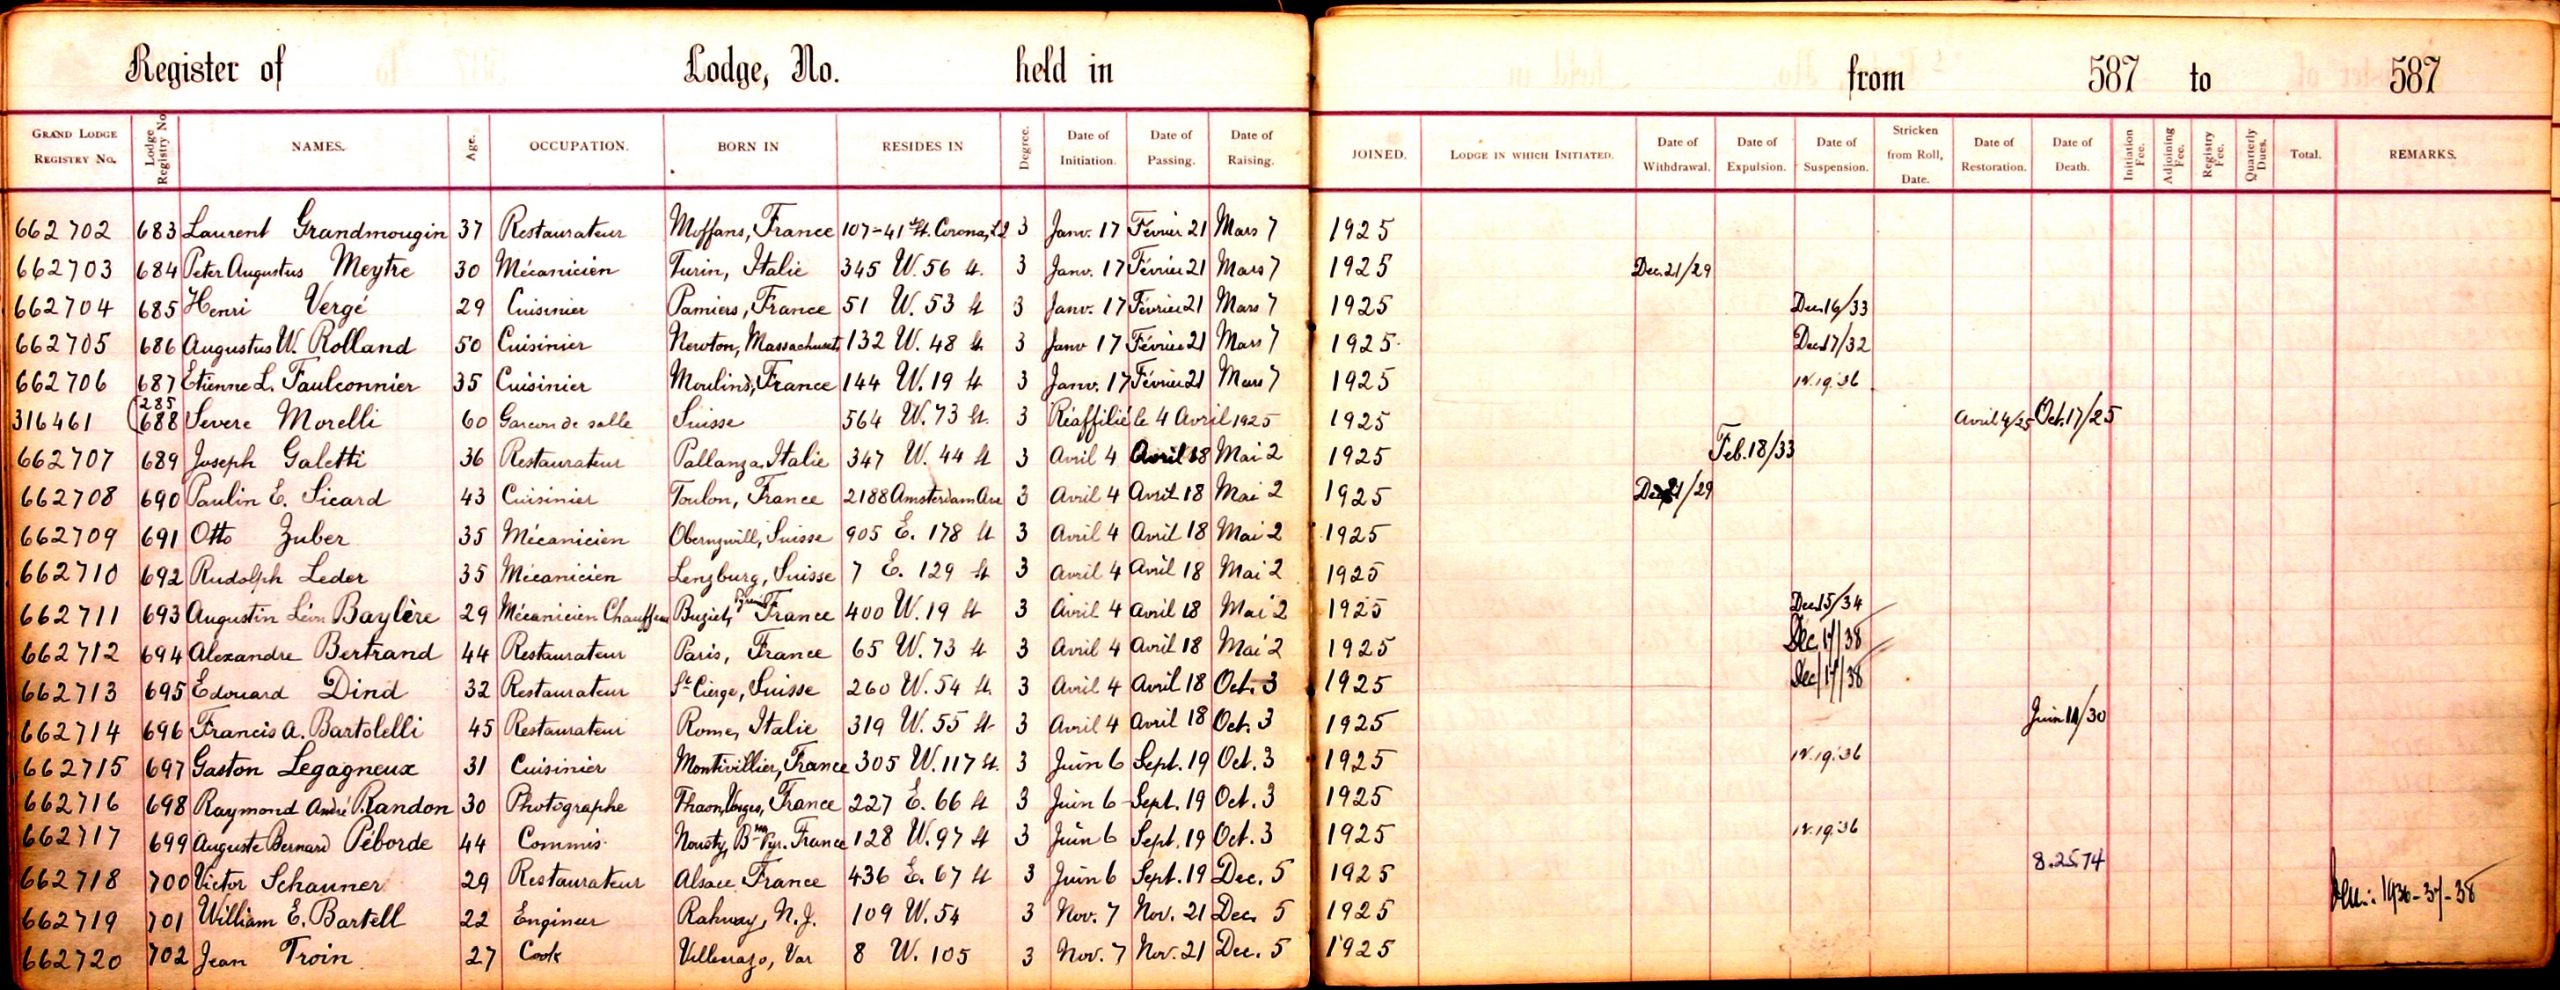 Register of Lodge, No. held in from 587 to 587
GRAND LODGE REGISTRY NO. Lodge Registry No. NAMES. Age. OCCUPATION. BORN IN RESIDES IN Degree. Date of Initiation. Date of Passing. Date of Raising. JOINED. LODGE IN WHICH INITIATED. Date of Withdrawal. Date of Expulsion. Date of Suspension. Stricken from Roll, Date. Date of Restoration. Date of Death. Initiation Fee. Adjoining Fee. Registry Fee. Quarterly Dues. Total. REMARKS.
662702 683 Laurent Grandmougin 37 Restaurateur Moffans, France 107-41st St. Corona, L.I. 3 Janv. 17 Février 21 Mars 7 1925
662703 684 Peter Augustus Meytre 30 Mécanicien Turin, Italie 345 W. 56 St. 3 Janv. 17 Février 21 Mars 7 1925 Dec. 21/29
662704 685 Henri Vergé 29 Cuisinier Pamiers, France 51 W. 53 St 3 Janv. 17 Février 21 Mars 7 1925 Dec. 16/33
662705 686 Augustus W. Rolland 50 Cuisinier Newton, Massachusets 132 W. 48 St. 3 Janv 17 Février 21 Mars 7 1925 Dec. 17/32
662706 687 Etienne L. Faulconnier 35 Cuisinier Moulins, France 144 W. 19 St 3 Janv. 17 Février 21 Mars 7 1925 12.19.36
316461 (285 688 Severe Morelli 60 Garcon de salle Suisse 564 W. 73 St. 3 Réaffilié le 4 Avril 1925 1925 Avril 4/25 Oct. 17/25
662707 689 Joseph Galetti 36 Restaurateur Pallanza, Italie 347 W. 44 St 3 Avril 4 Avril 18 Mai 2 1925 Feb. 18/33
662708 690 Paulin E. Sicard 43 Cuisinier Toulon, France 2188 Amsterdam Ave 3 Avril 4 Avril 18 Mai 2 1925 Dec. 21/29
662709 691 Otto Zuber 35 Mécanicien Oberuzwill, Suisse 905 E. 178 St 3 Avril 4 Avril 18 Mai 2 1925
662710 692 Rudolph Leder 35 Mécanicien Lenzburg, Suisse 7 E. 129 St 3 Avril 4 Avril 18 Mai 2 1925
662711 693 Augustin Léon Baylère 29 Mécanicien Chauffeur Buziet, France 400 W. 19 St 3 Avril 4 Avril 18 Mai 2 1925 Dec. 15/34
662712 694 Alexandre Bertrand 44 Restaurateur Paris, France 65 W. 73 St 3 Avril 4 Avril 18 Mai 2 1925 Dec. 17/38
662713 695 Edouard Dind 32 Restaurateur St. Cierge, Suisse 260 W. 54 St. 3 Avril 4 Avril 18 Oct. 3 1925 Dec/17/38
662714 696 Francis A. Bartolelli 45 Restaurateur Rome, Italie 319 W. 55 St 3 Avril 4 Avril 18 Oct. 3 1925 Juin /30
662715 697 Gaston Legagneux 31 Cuisinier Montivillier, France 305 W. 117 St. 3 Juin 6 Sept. 19 Oct. 3 1925 12.19.36
662716 698 Raymond André P. Randon 30 Photographe Thaon, Vosges, France 227 E. 66 St 3 Juin 6 Sept. 19 Oct. 3 1925
662717 699 Auguste Bernard Péborde 44 Commis Nousty, Bses Pyr. France 128 W. 97 St 3 Juin 6 Sept. 19 Oct. 3 1925 12.19.36
662718 700 Victor Schauner 29 Restaurateur Alsace France 436 E. 67 St 3 Juin 6 Sept. 19 Dec. 5 1925 8.25.74
662719 701 William E. Bartell 22 Engineer Rahway, N.J. 109 W. 54 3 Nov. 7 Nov. 21 Dec. 5 1925 1936-37-38
662720 702 Jean Troin 27 Cook Villecrozo, Var 8 W. 105 3 Nov. 7 Nov. 21 Dec. 5 1925